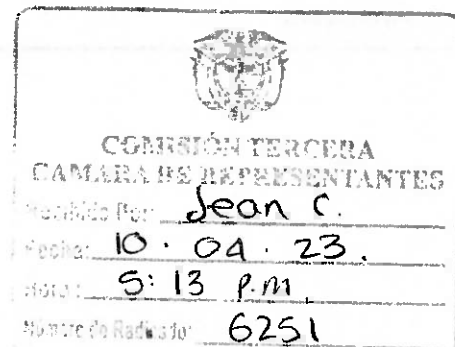 COMISIÓN TERCERA
CAMARA DE REPRESENTANTES
Recibido Por: Jean C.
Fecha: 10 . 04 . 23.
Hora: 5:13 p.m
Número de Radicado: 6251